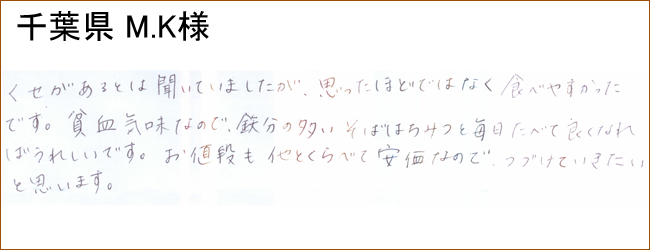 千葉県 M.K様
くせがあるとは聞いていましたが、思ったほどではなく食べやすかった
です。貧血気味なので、鉄分の多いそばはちみつを毎日たべて良くなれ
ばうれしいです。お値段も他とくらべて安価なので、つづけていきたい
と思います。